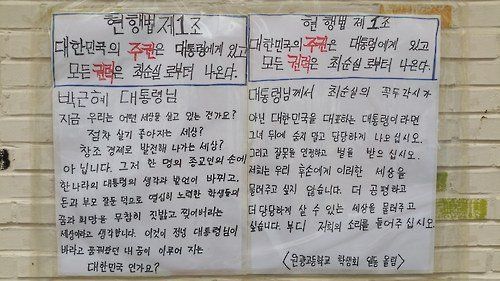 현행법 제1조
대한민국의 주권은 대통령에게 있고
모든 권력은 최순실로부터 나온다.
박근혜 대통령님
지금 우리는 어떤 세상을 살고 있는 건가요?
점차 살기 좋아지는 세상?
창조 경제로 발전해 나가는 세상?
아닙니다. 그저 한 명의 종교인의 손에
한 나라의 대통령의 생각과 발언이 바뀌고,
돈과 부모 잘둔 덕으로 열심히 노력한 학생들의
꿈과 희망을 무참히 짓밟고 찢어버리는
세상이라고 생각합니다. 이것이 정녕 대통령님이
바라고 꿈꿔왔던 내 꿈이 이루어 지는
대한민국 인가요?
현행법 제1조
대한민국의 주권은 대통령에게 있고
모든 권력은 최순실로부터 나온다.
대통령님께서 최순실의 꼭두각시가
아닌 대한민국을 대표하는 대통령이라면
그녀 뒤에 숨지 말고 당당하게 나오십시오.
그리고 잘못을 인정하고 벌을 받으십시오.
저희는 우리 후손에게 이러한 세상을
물려주고 싶지 않습니다. 더 공평하고
더 당당하게 살 수 있는 세상을 물려주고
싶습니다. 부디 저희의 소리를 들어주십시오.
<문광고등학교 학생회 일동 올림>